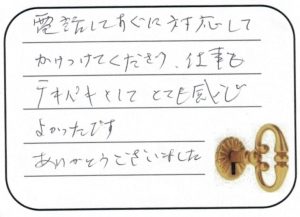 電話してすぐに対応して
かけつけてくださり、仕事も
テキパキとして とても感じ
よかったです
ありがとうございました